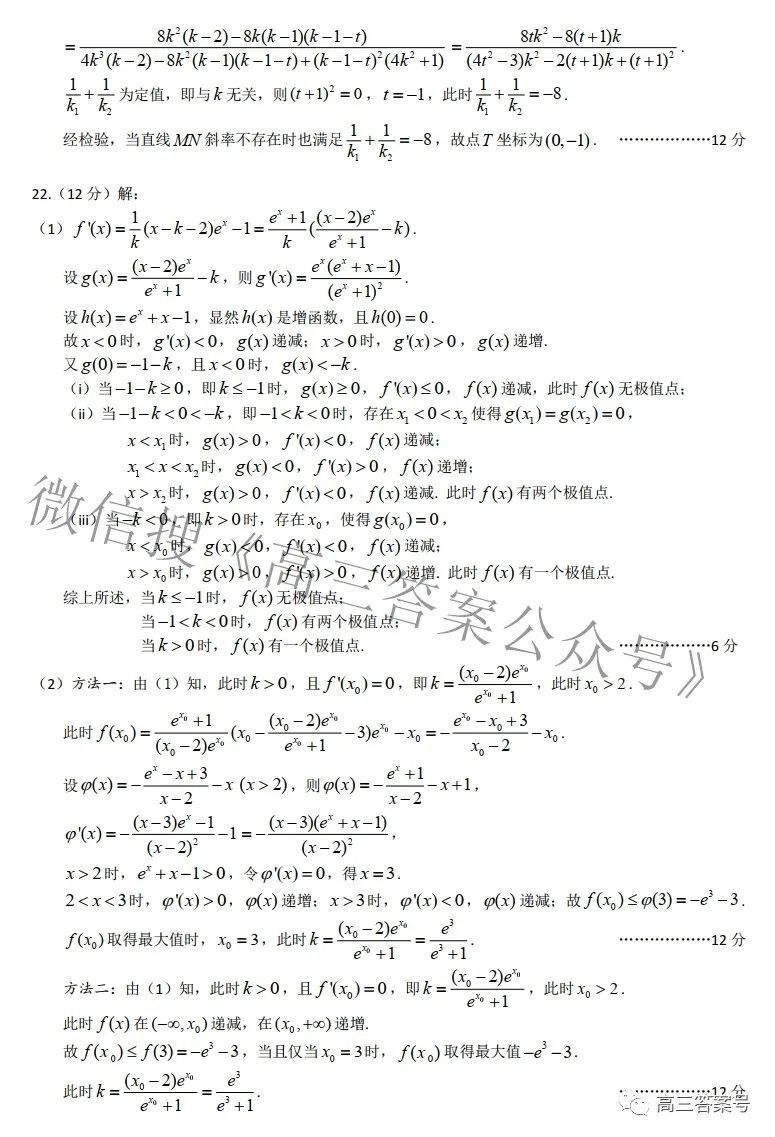 = \frac{8k^2(k-2)-8k(k-1)(k-1-t)}{4k^3(k-2)-8k^2(k-1)(k-1-t)+(k-1-t)^2(4k^2+1)} = \frac{8tk^2-8(t+1)k}{(4t^2-3)k^2-2(t+1)k+(t+1)^2}.
\frac{1}{k_1}+\frac{1}{k_2} 为定值，即与k无关，则(t+1)^2=0，t=-1，此时\frac{1}{k_1}+\frac{1}{k_2}=-8.
经检验，当直线MN斜率不存在时也满足\frac{1}{k_1}+\frac{1}{k_2}=-8，故点T坐标为(0,-1). ………………12分
22.（12分）解：
（1）f'(x)=\frac{1}{k}(x-k-2)e^x-1=\frac{e^x+1}{k}(\frac{(x-2)e^x}{e^x+1}-k).
设g(x)=\frac{(x-2)e^x}{e^x+1}-k，则g'(x)=\frac{e^x(e^x+x-1)}{(e^x+1)^2}.
设h(x)=e^x+x-1，显然h(x)是增函数，且h(0)=0.
故x<0时，g'(x)<0，g(x)递减；x>0时，g'(x)>0，g(x)递增.
又g(0)=-1-k，且x<0时，g(x)<-k.
（i）当-1-k≥0，即k≤-1时，g(x)≥0，f'(x)≤0，f(x)递减，此时f(x)无极值点；
（ii）当-1-k<0<-k，即-1<k<0时，存在x_1<0<x_2使得g(x_1)=g(x_2)=0，
x<x_1时，g(x)>0，f'(x)<0，f(x)递减；
x_1<x<x_2时，g(x)<0，f'(x)>0，f(x)递增；
x>x_2时，g(x)>0，f'(x)<0，f(x)递减. 此时f(x)有两个极值点.
（iii）当-k<0，即k>0时，存在x_0，使得g(x_0)=0，
x<x_0时，g(x)<0，f'(x)<0，f(x)递减；
x>x_0时，g(x)>0，f'(x)>0，f(x)递增. 此时f(x)有一个极值点.
综上所述，当k≤-1时，f(x)无极值点；
当-1<k<0时，f(x)有两个极值点；
当k>0时，f(x)有一个极值点. ………………6分
（2）方法一：由（1）知，此时k>0，且f'(x_0)=0，即k=\frac{(x_0-2)e^{x_0}}{e^{x_0}+1}，此时x_0>2.
此时f(x_0)=\frac{e^{x_0}+1}{(x_0-2)e^{x_0}}(x_0-\frac{(x_0-2)e^{x_0}}{e^{x_0}+1}-3)e^{x_0}-x_0=-\frac{e^{x_0}-x_0+3}{x_0-2}-x_0.
设φ(x)=-\frac{e^x-x+3}{x-2}-x (x>2)，则φ(x)=-\frac{e^x+1}{x-2}-x+1，
φ'(x)=-\frac{(x-3)e^x-1}{(x-2)^2}-1=-\frac{(x-3)(e^x+x-1)}{(x-2)^2}，
x>2时，e^x+x-1>0，令φ'(x)=0，得x=3.
2<x<3时，φ'(x)>0，φ(x)递增；x>3时，φ'(x)<0，φ(x)递减；故f(x_0)≤φ(3)=-e^3-3.
f(x_0)取得最大值时，x_0=3，此时k=\frac{(x_0-2)e^{x_0}}{e^{x_0}+1}=\frac{e^3}{e^3+1}. ………………12分
方法二：由（1）知，此时k>0，且f'(x_0)=0，即k=\frac{(x_0-2)e^{x_0}}{e^{x_0}+1}，此时x_0>2.
此时f(x)在(-∞,x_0)递减，在(x_0,+∞)递增.
故f(x_0)≤f(3)=-e^3-3，当且仅当x_0=3时，f(x_0)取得最大值-e^3-3.
此时k=\frac{(x_0-2)e^{x_0}}{e^{x_0}+1}=\frac{e^3}{e^3+1}. ………………12分
微信搜《高三答案公众号》
高三答案号